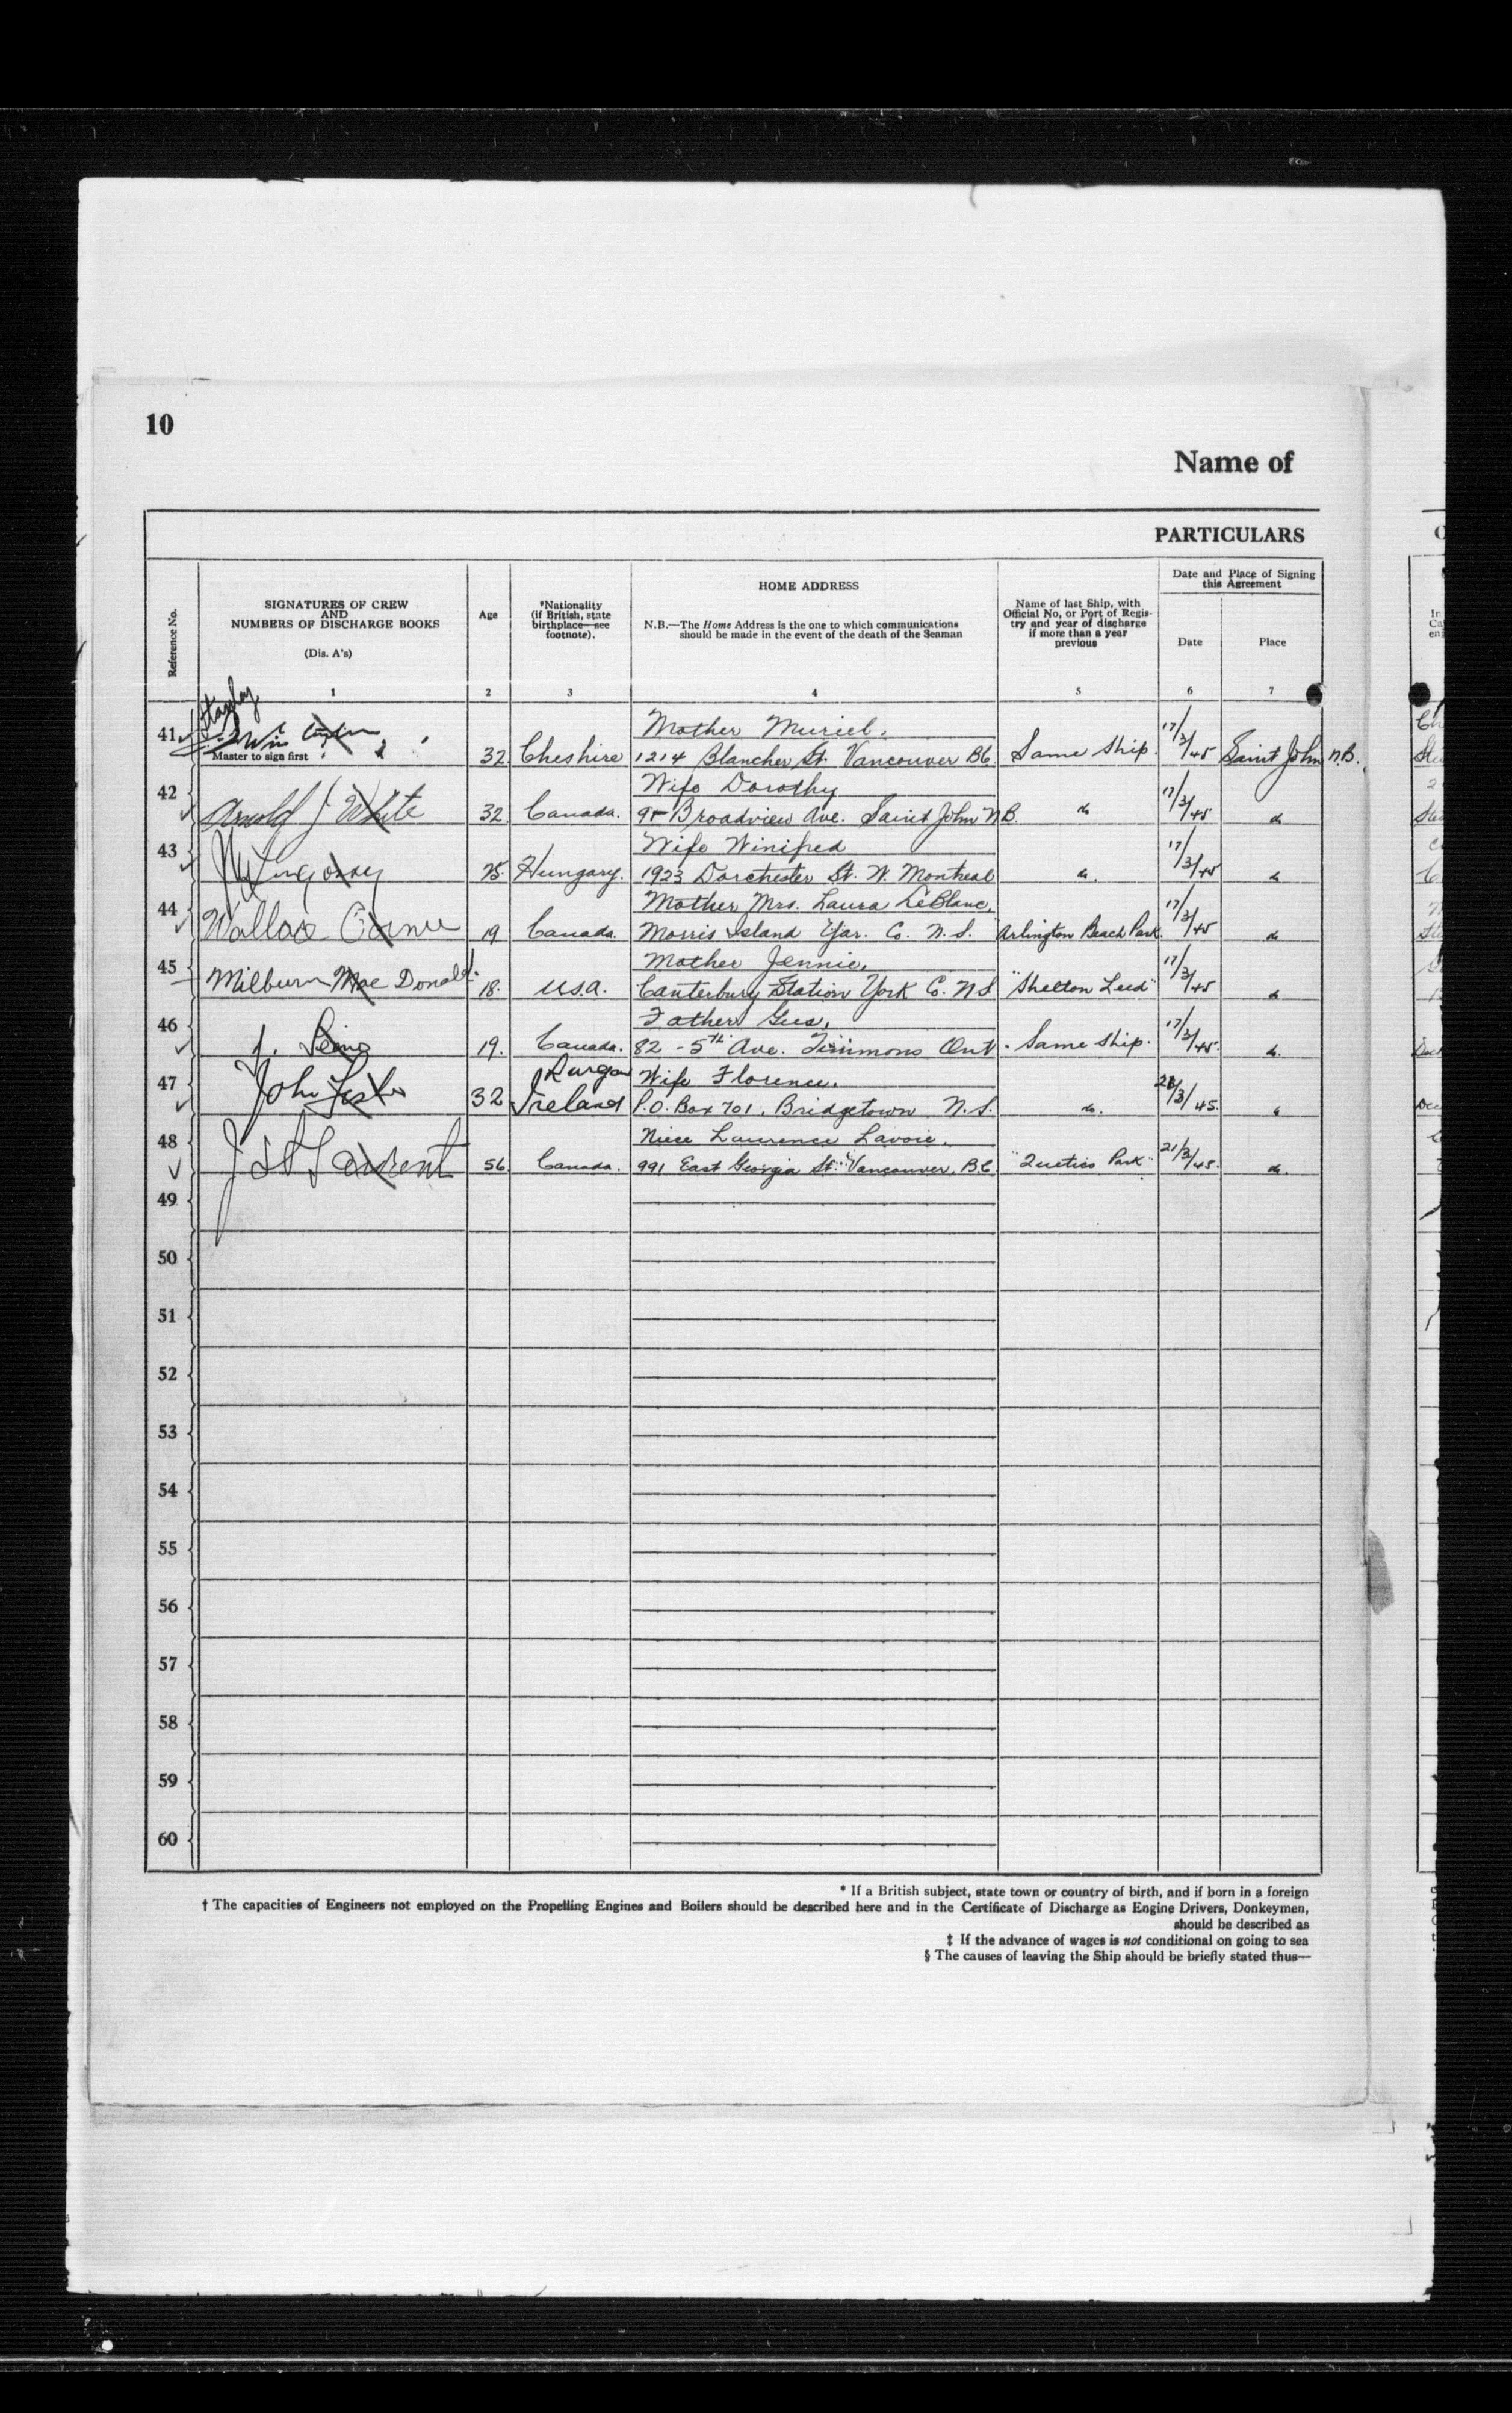 10
Name of
PARTICULARS
Reference No.
SIGNATURES OF CREW
AND
NUMBERS OF DISCHARGE BOOKS
(Dis. A's)
Age
*Nationality
(if British, state
birthplace—see
footnote).
HOME ADDRESS
N.B.—The Home Address is the one to which communications
should be made in the event of the death of the Seaman
Name of last Ship, with
Official No, or Port of Regis-
try and year of discharge
if more than a year
previous
Date and Place of Signing
this Agreement
Date
Place
1 2 3 4 5 6 7
Stanley
41 Mother Muriel.
Master to sign first 32 Cheshire 1214 Blancher St. Vancouver BC Same Ship. 17/3/45 Saint John N.B.
42 Wife Dorothy
Arnold J White 32 Canada. Broadview Ave. Saint John N.B. do 17/3/45 do
43 Wife Winifred
25 Hungary. 1923 Dorchester St. W. Montreal do. 17/3/45 do
44 Mother Mrs. Laura LeBlanc.
Wallace 19 Canada. Morris Island Yar. Co. N.S. Arlington Beach Park. 17/3/45 do
45 Mother Jennie.
Milburn Mac Donald 18. U.S.A. Canterbury Station York Co. N.S. "Shelton 17/3/45 do
46 Father Gus.
J. 19. Canada. 82 - 5th Ave. Timmons Ont. Same Ship. 17/3/45. do.
47 Wife Florence.
John 32 Ireland P.O. Box 701. Bridgetown N.S. do. /3/45. do
48 Niece Laurence Lavoie.
56 Canada. 991 East Georgia St. Vancouver, B.C. "Quetico Park" 21/3/45. do.
49
50
51
52
53
54
55
56
57
58
59
60
* If a British subject, state town or country of birth, and if born in a foreign
† The capacities of Engineers not employed on the Propelling Engines and Boilers should be described here and in the Certificate of Discharge as Engine Drivers, Donkeymen,
should be described as
‡ If the advance of wages is not conditional on going to sea
§ The causes of leaving the Ship should be briefly stated thus—